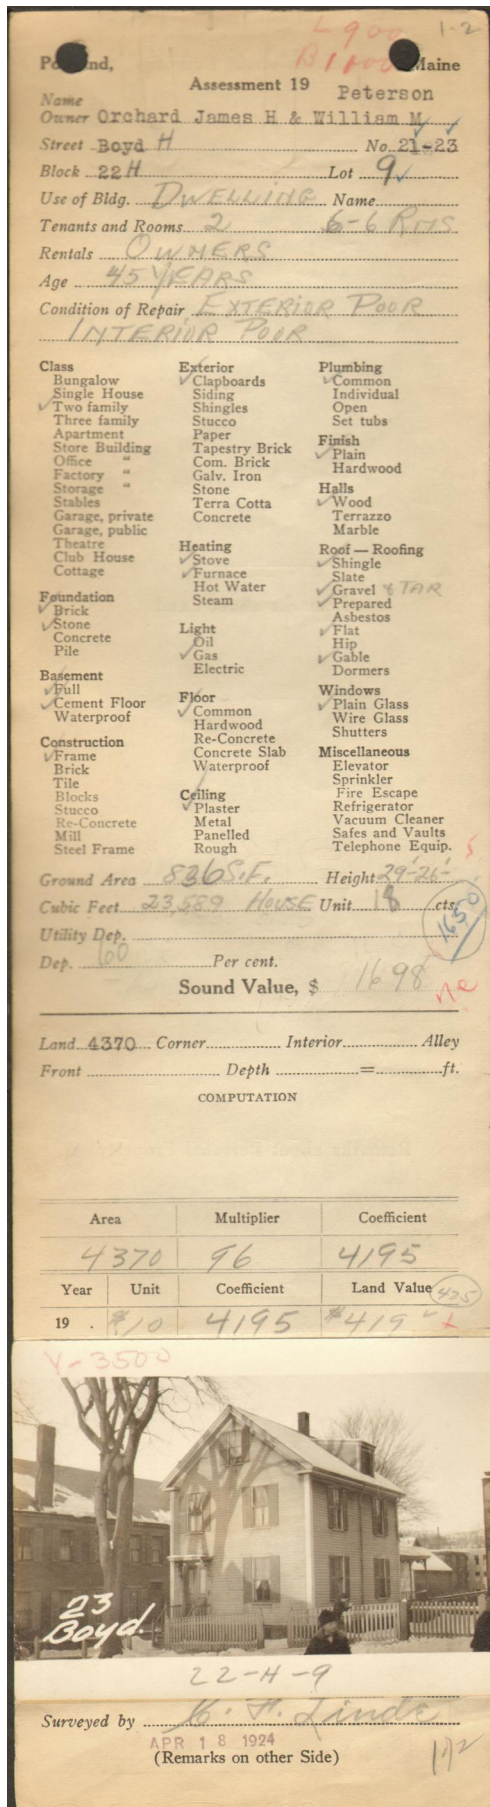 L 900
1-2
B 1100
Maine
Assessment 19
Peterson
Name
Owner Orchard James H & William M
Street Boyd H No. 21-23
Block 22 H Lot 9
Use of Bldg. DWELLING Name
Tenants and Rooms 2 6-6 RMS
Rentals OWNERS
Age 45 YEARS
Condition of Repair EXTERIOR POOR
INTERIOR POOR
Class
Bungalow
✓ Single House
✓ Two family
Three family
Apartment
Store Building
Office "
Factory "
Storage "
Stables
Garage, private
Garage, public
Theatre
Club House
Cottage
Foundation
✓ Brick
✓ Stone
Concrete
Pile
Basement
✓ Full
✓ Cement Floor
Waterproof
Construction
✓ Frame
Brick
Tile
Blocks
Stucco
Re-Concrete
Mill
Steel Frame
Exterior
✓ Clapboards
Siding
Shingles
Stucco
Paper
Tapestry Brick
Com. Brick
Galv. Iron
Stone
Terra Cotta
Concrete
Heating
✓ Stove
✓ Furnace
Hot Water
Steam
Light
✓ Oil
✓ Gas
Electric
Floor
✓ Common
Hardwood
Re-Concrete
Concrete Slab
Waterproof
Ceiling
✓ Plaster
Metal
Panelled
Rough
Plumbing
✓ Common
Individual
Open
Set tubs
Finish
✓ Plain
Hardwood
Halls
✓ Wood
Terrazzo
Marble
Roof — Roofing
✓ Shingle
Slate
✓ Gravel & TAR
✓ Prepared
Asbestos
✓ Flat
Hip
✓ Gable
Dormers
Windows
✓ Plain Glass
Wire Glass
Shutters
Miscellaneous
Elevator
Sprinkler
Fire Escape
Refrigerator
Vacuum Cleaner
Safes and Vaults
Telephone Equip.
Ground Area 836 S.F. Height 29'-26'
Cubic Feet 23,589 HOUSE Unit 18 cts.
1650
Utility Dep.
Dep. 60 Per cent.
Sound Value, $ 1698
Land 4370 Corner Interior Alley
Front Depth = ft.
COMPUTATION
Area Multiplier Coefficient
4370 96 4195
Year Unit Coefficient Land Value 425
19 . $10 4195 $419
V-3500
23
Boyd.
22-H-9
Surveyed by
APR 18 1924
(Remarks on other Side)